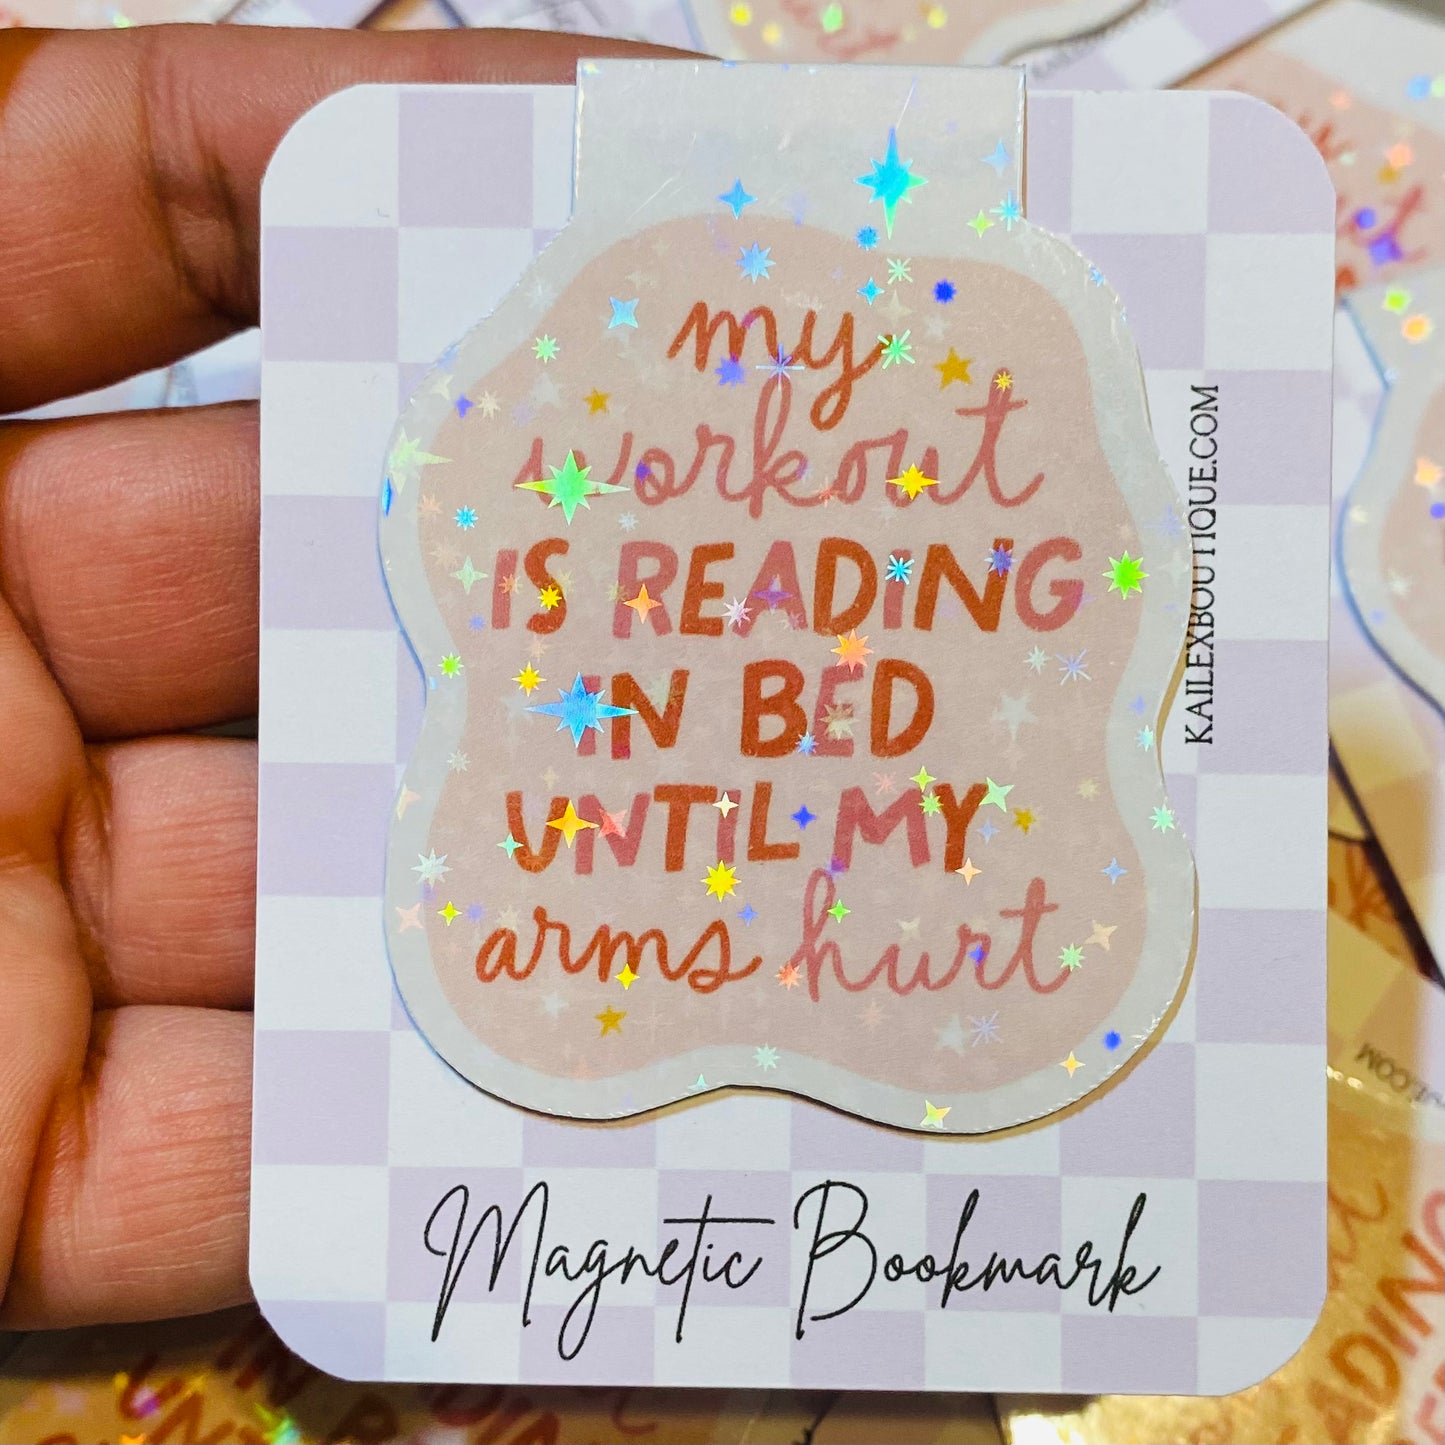 my
workout
IS READING
IN BED
UNTIL MY
arms hurt
KAILEXBOUTIQUE.COM
Magnetic Bookmark